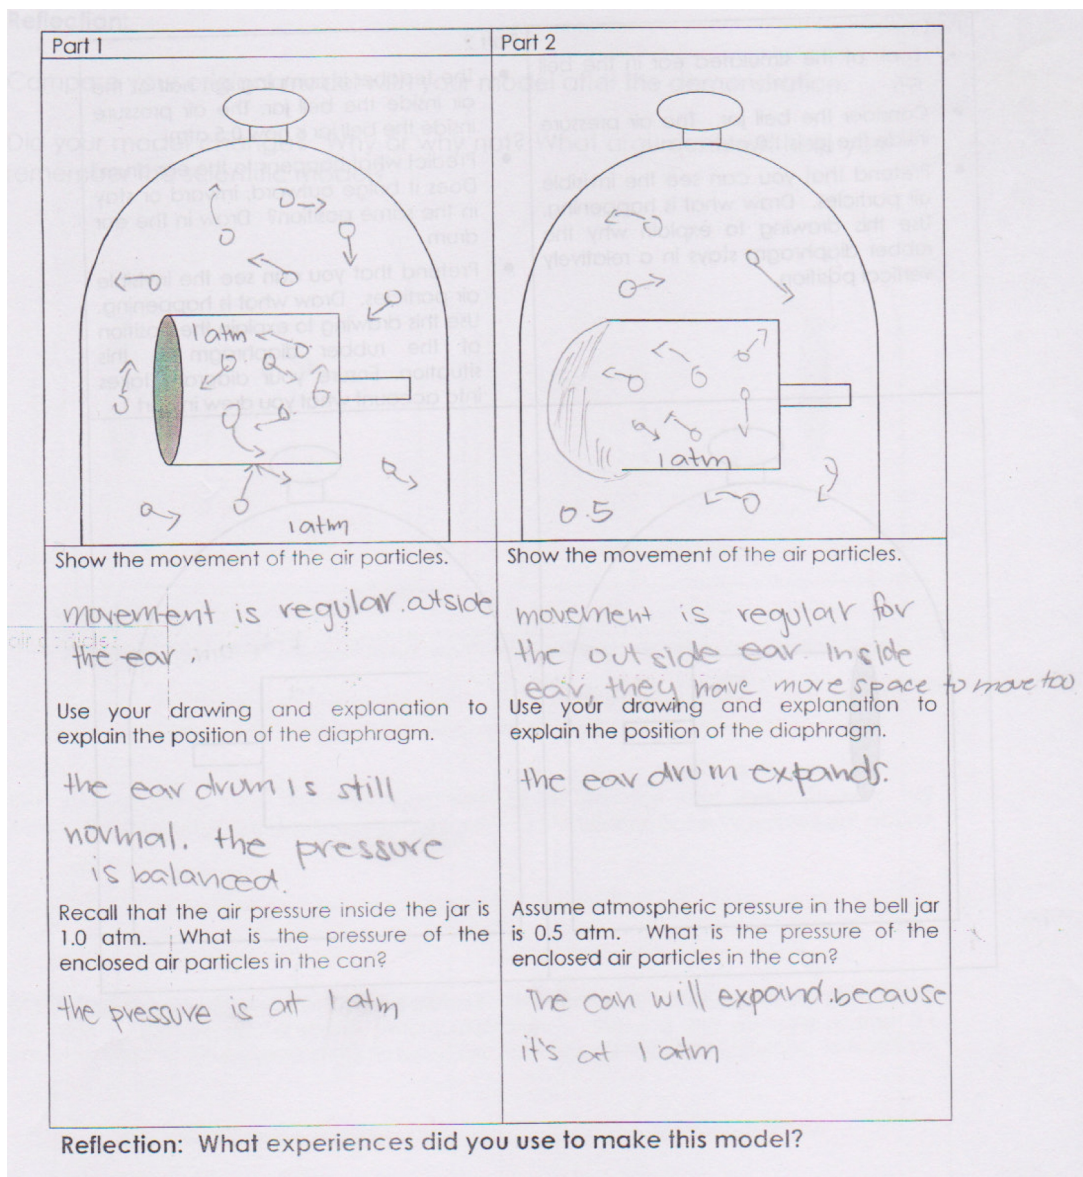 Part 1
Part 2
1 atm
1 atm
1 atm
0.5
Show the movement of the air particles.
movement is regular. outside
the ear.
Use your drawing and explanation to
explain the position of the diaphragm.
the ear drum is still
normal. the pressure
is balanced.
Recall that the air pressure inside the jar is
1.0 atm. What is the pressure of the
enclosed air particles in the can?
the pressure is at 1 atm
Show the movement of the air particles.
movement is regular for
the outside ear. Inside
ear, they have more space to move too.
Use your drawing and explanation to
explain the position of the diaphragm.
the ear drum expands.
Assume atmospheric pressure in the bell jar
is 0.5 atm. What is the pressure of the
enclosed air particles in the can?
The can will expand. because
it's at 1 atm
Reflection: What experiences did you use to make this model?